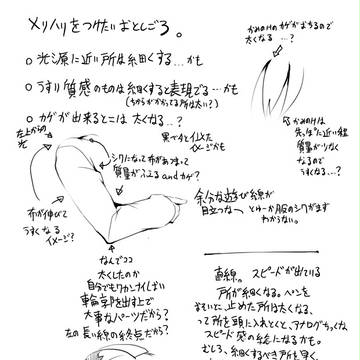 メリハリをつけたいおとしごろ。
○ 光源に近い所は細くする…かも
○ うすい質感のものは細くすると表現でる…かも
(ちからがかかってる所は太い?)
○ カゲが出来るとこは太くなる…?
かみのけのカゲがおちるので
太くなる…?
かみのけは
先っぽに近い程
質量が少なく
なるので
うすくなる
…?
左上からの
光
黒ベタと似た
イメージかも
シワになって布があつまって
質量がふえる andカゲ?
布が伸びて
うすくなる
イメージ?
余分な遊び線が
目立つな〜
とゆーか服のシワがまず
わからない。
なんでココ
太くしたのか
自分でもワカンナイしばい
輪郭を出す上で
大事なパーツだから?
左の長い線の終点だから?
直線。 スピードが出ている
所が細くなる。ペンを
止めた所は太くなる、
って所を頭に入れとくと、アナログちっくな、
スピード感の絵になるかも。
むしろ、細くするべき所を早く